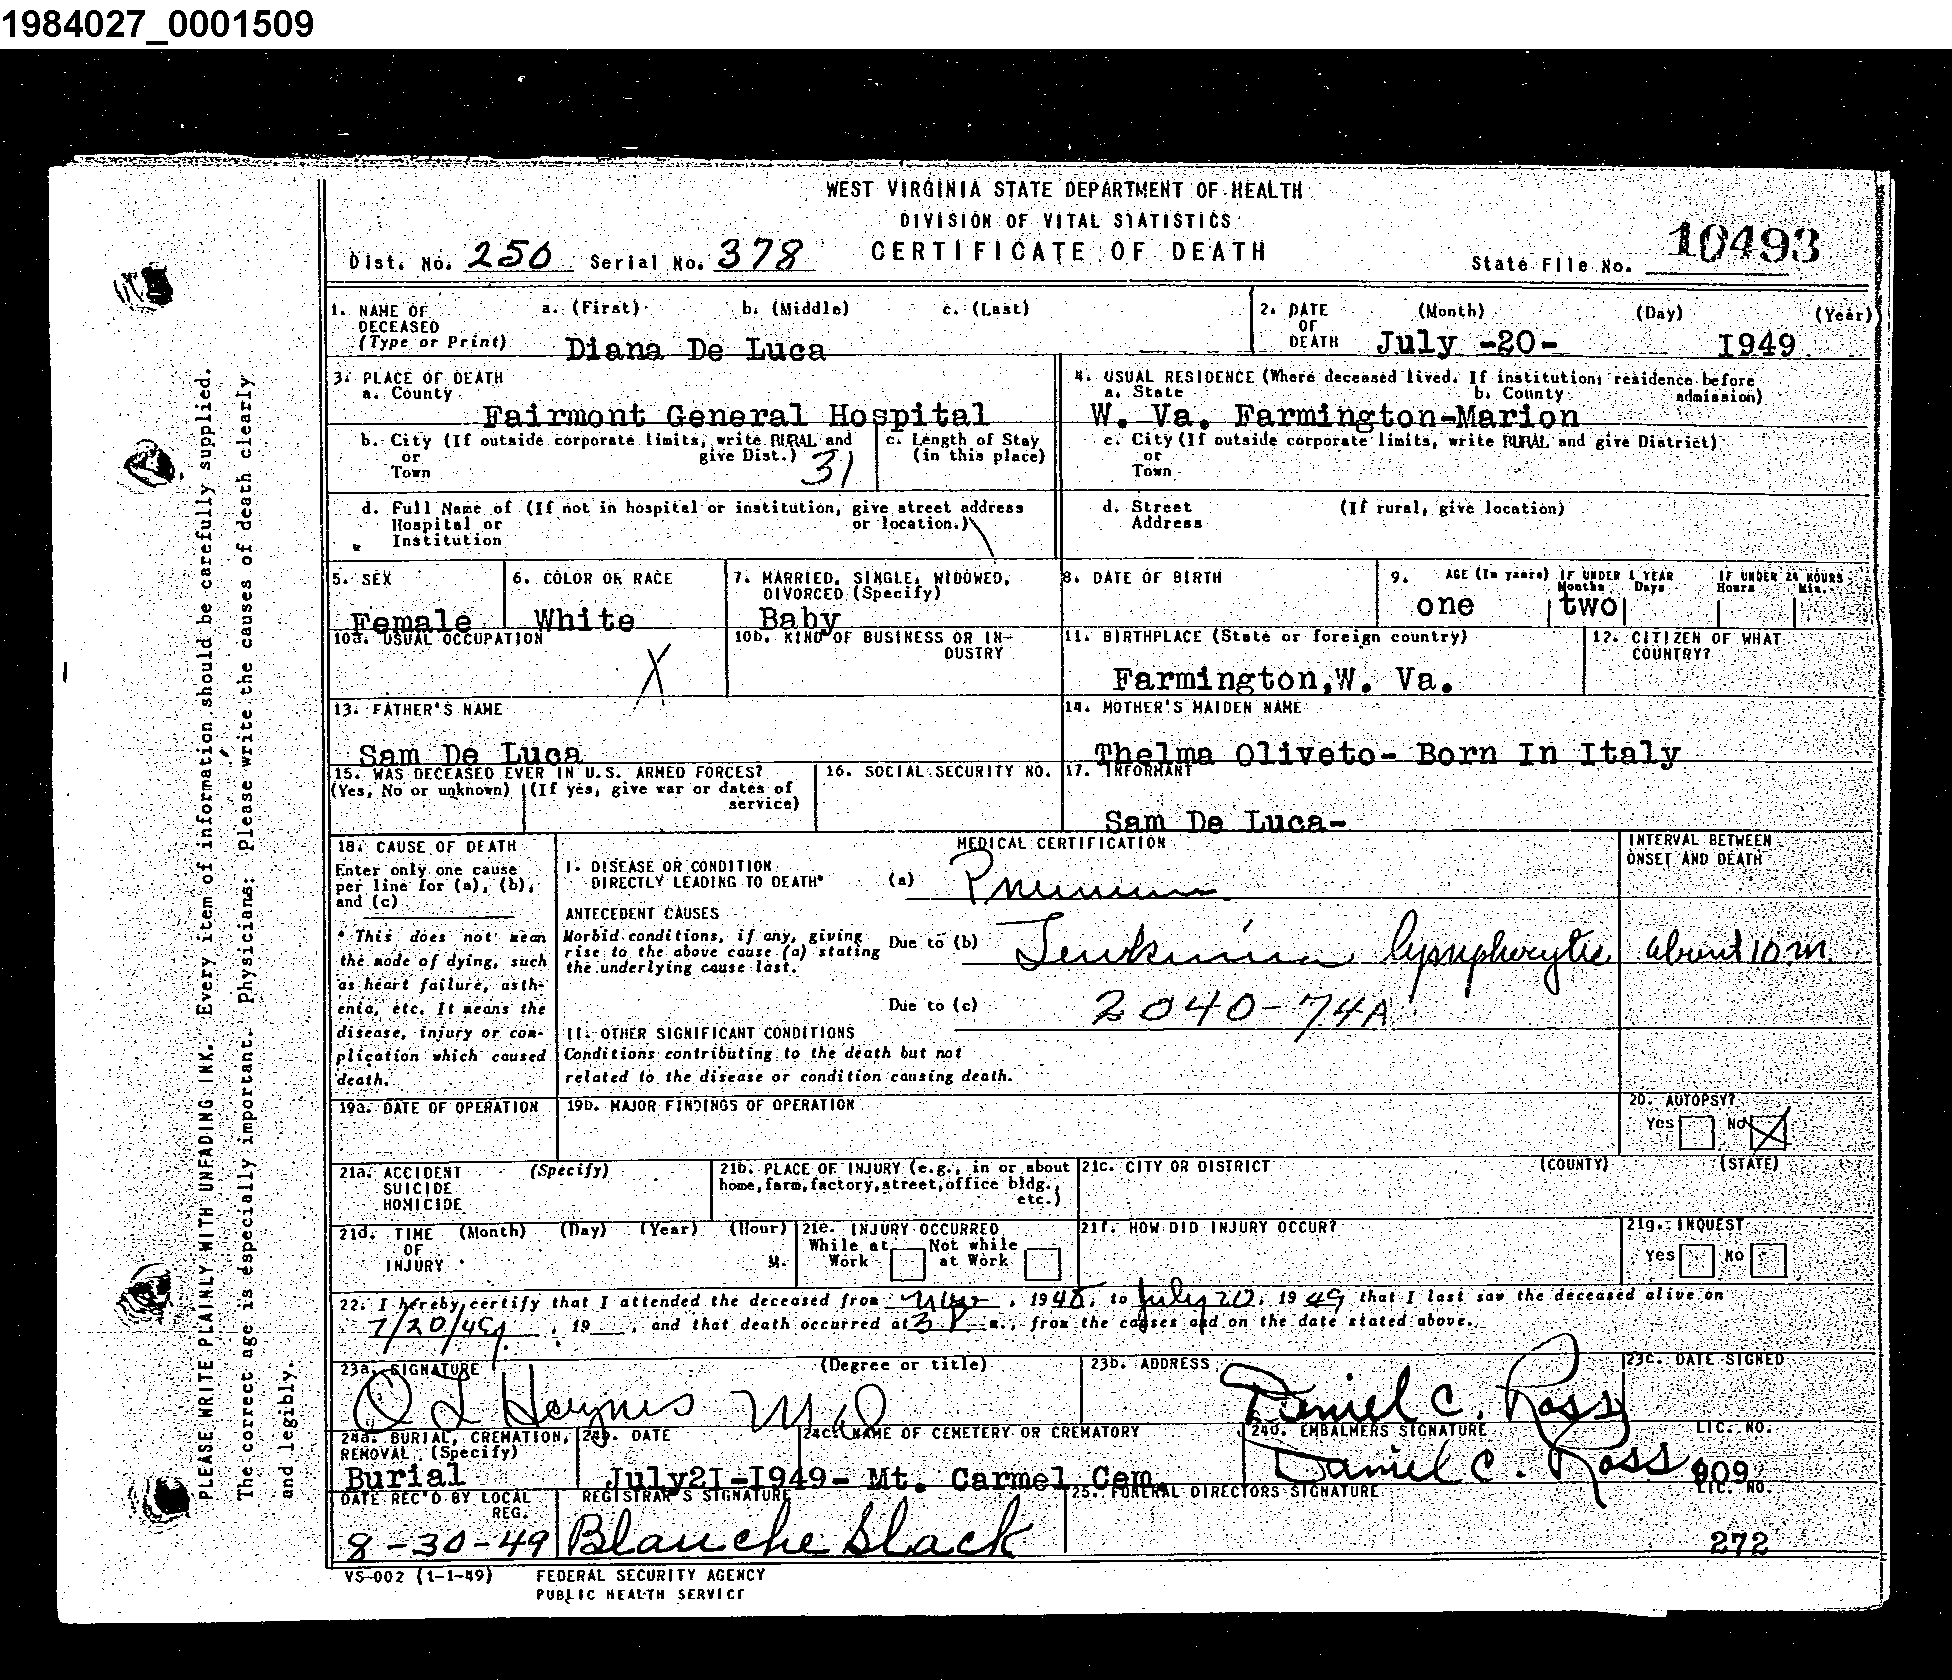 1984027_0001509
WEST VIRGINIA STATE DEPARTMENT OF HEALTH
DIVISION OF VITAL STATISTICS
Dist. No. 250 Serial No. 378 CERTIFICATE OF DEATH State File No. 10493
1. NAME OF DECEASED (Type or Print) a. (First) b. (Middle) c. (Last)
Diana De Luca
2. DATE OF DEATH (Month) (Day) (Year)
July -20- 1949
3. PLACE OF DEATH
a. County
Fairmont General Hospital
4. USUAL RESIDENCE (Where deceased lived. If institution: residence before admission)
a. State b. County
W. Va. Farmington-Marion
b. City (If outside corporate limits, write RURAL and give Dist.) or Town 31
c. Length of Stay (in this place)
c. City (If outside corporate limits, write RURAL and give District) or Town
d. Full Name of (If not in hospital or institution, give street address or location.) Hospital or Institution
d. Street Address (If rural, give location)
5. SEX
Female
6. COLOR OR RACE
White
7. MARRIED, SINGLE, WIDOWED, DIVORCED (Specify)
Baby
8. DATE OF BIRTH
9. AGE (In years) IF UNDER 1 YEAR Months Days IF UNDER 24 HOURS Hours Min.
one two
10a. USUAL OCCUPATION
X
10b. KIND OF BUSINESS OR INDUSTRY
11. BIRTHPLACE (State or foreign country)
Farmington,W. Va.
12. CITIZEN OF WHAT COUNTRY?
13. FATHER'S NAME
Sam De Luca
14. MOTHER'S MAIDEN NAME
Thelma Oliveto- Born In Italy
15. WAS DECEASED EVER IN U.S. ARMED FORCES?
(Yes, No or unknown) (If yes, give war or dates of service)
16. SOCIAL SECURITY NO.
17. INFORMANT
Sam De Luca-
18. CAUSE OF DEATH
Enter only one cause per line for (a), (b), and (c)
* This does not mean the mode of dying, such as heart failure, asthenia, etc. It means the disease, injury or complication which caused death.
MEDICAL CERTIFICATION
INTERVAL BETWEEN ONSET AND DEATH
I. DISEASE OR CONDITION DIRECTLY LEADING TO DEATH* (a)
ANTECEDENT CAUSES
Morbid conditions, if any, giving rise to the above cause (a) stating the underlying cause last.
Due to (b) lymphocytic about 10 m.
Due to (c) 2040-74A
II. OTHER SIGNIFICANT CONDITIONS
Conditions contributing to the death but not related to the disease or condition causing death.
19a. DATE OF OPERATION
19b. MAJOR FINDINGS OF OPERATION
20. AUTOPSY?
Yes No X
21a. ACCIDENT SUICIDE HOMICIDE (Specify)
21b. PLACE OF INJURY (e.g., in or about home, farm, factory, street, office bldg., etc.)
21c. CITY OR DISTRICT (COUNTY) (STATE)
21d. TIME OF INJURY (Month) (Day) (Year) (Hour) M.
21e. INJURY OCCURRED
While at Work Not while at Work
21f. HOW DID INJURY OCCUR?
21g. INQUEST
Yes No
22. I hereby certify that I attended the deceased from , 1948, to July 20, 1949 that I last saw the deceased alive on
7/20/49, 19 , and that death occurred at 3 P m., from the causes and on the date stated above.
23a. SIGNATURE (Degree or title)
O L Haynes M D
23b. ADDRESS
Daniel C. Ross
23c. DATE SIGNED
24a. BURIAL, CREMATION, REMOVAL (Specify)
Burial
24b. DATE
July2I-I949-
24c. NAME OF CEMETERY OR CREMATORY
Mt. Carmel Cem.
24d. EMBALMERS SIGNATURE LIC. NO.
Daniel C. Ross 909
DATE REC'D BY LOCAL REG.
8-30-49
REGISTRAR'S SIGNATURE
Blanche Slack
25. FUNERAL DIRECTORS SIGNATURE LIC. NO.
272
VS-002 (1-1-49) FEDERAL SECURITY AGENCY
PUBLIC HEALTH SERVICE
PLEASE WRITE PLAINLY WITH UNFADING INK. Every item of information should be carefully supplied.
The correct age is especially important. Physicians: Please write the causes of death clearly
and legibly.